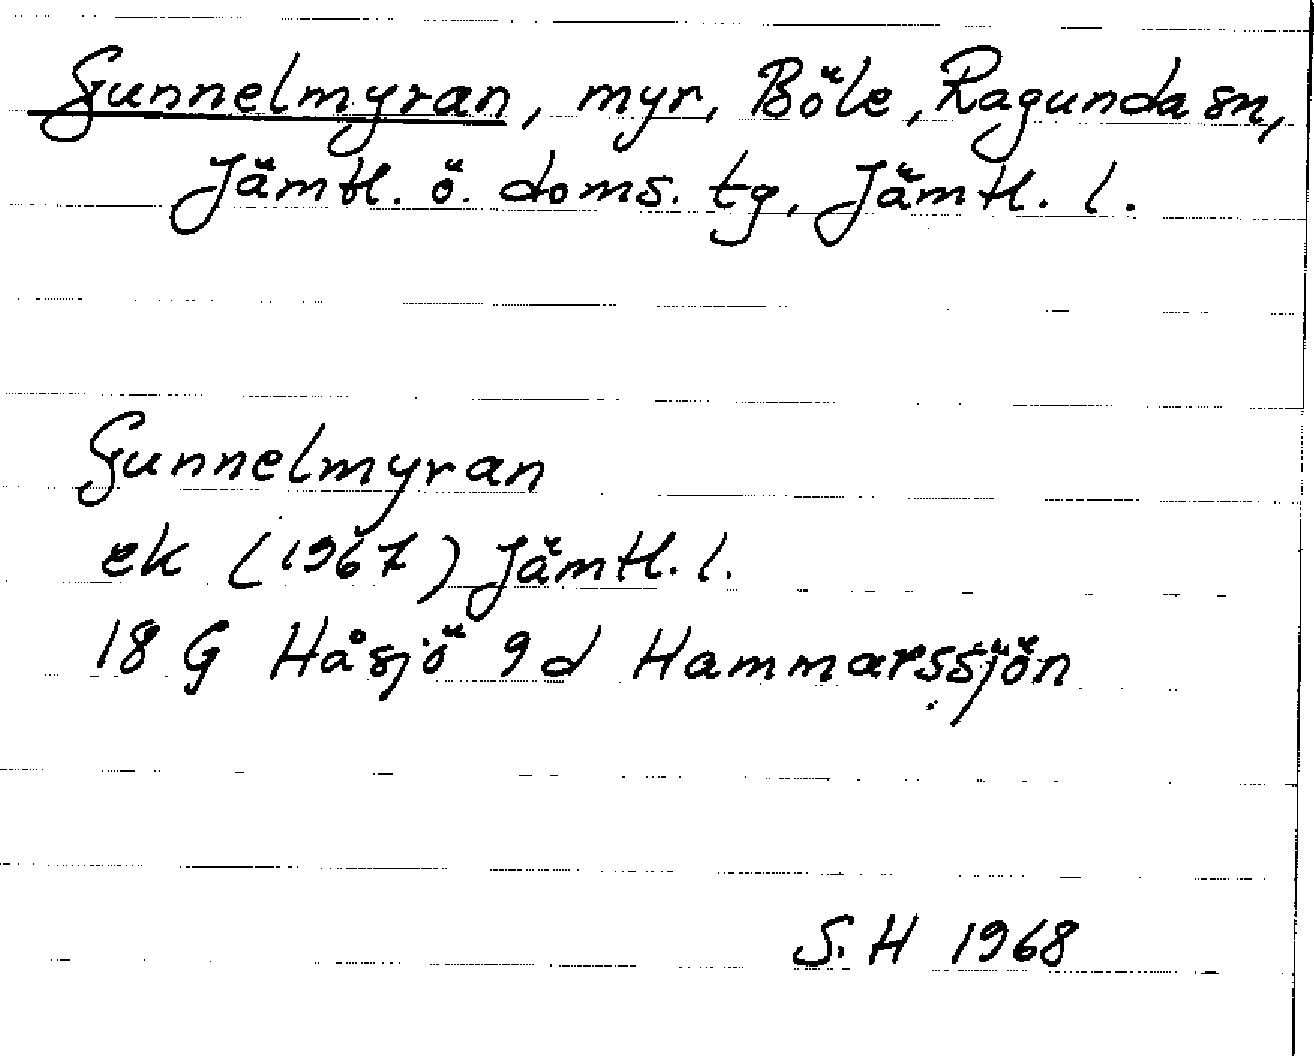 Gunnelmyran, myr, Böle, Ragunda sn,
Jämtl. ö. doms. tg, Jämtl. l.
Gunnelmyran
ek (1967) Jämtl. l.
18 G Håsjö 9d Hammarssjön
S. H 1968